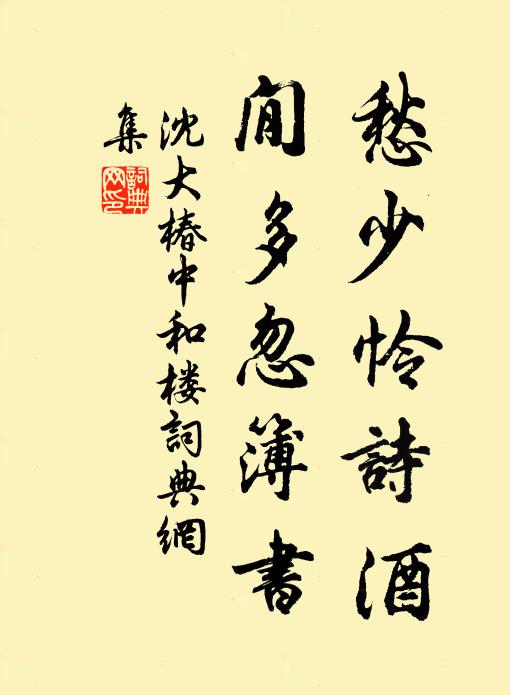 愁少怜詩酒
閒多忽簿書
沈大椿中和楼詞典網
集
詞典網印